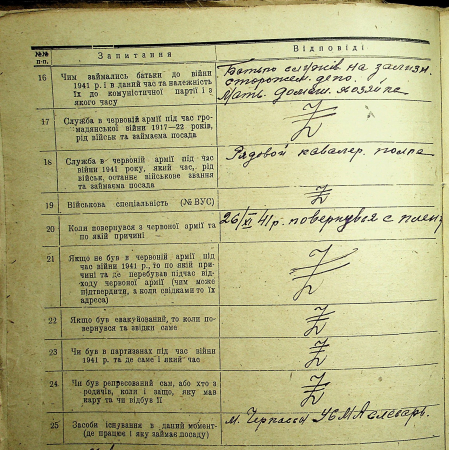 №№ п-п.
Запитання
Відповіді
16 Чим займались батьки до війни
1941 р. і в даний час та належність
їх до комуністичної партії і з
якого часу
Батько служив на залізн.
сторожем депо.
Мать домаш. хозяйка
17 Служба в червоній армії під час гро-
мадянської війни 1917—22 років,
рід військ та займаєма посада
18 Служба в червоній армії під час
війни 1941 року, який час, рід
військ, останнє військове звання
та займаєма посада
Рядовой кавалер. полка
19 Військова спеціальність (№ ВУС)
20 Коли повернувся з червоної армії та
по якій причині
26/XI 41 р. повернувся с плену
21 Якщо не був в червоній армії під
час війни 1941 р., то по якій при-
чині та де перебував підчас від-
ходу червоної армії (чим може
підтвердити, а коли свідками то їх
адреса)
22 Якщо був евакуйований, то коли по-
вернувся та звідки саме
23 Чи був в партизанах під час війни
1941 р. та де саме і який час
24 Чи був репресований сам, або хто з
родичів, коли і защо, яку мав
кару та чи відбув її
25 Засоби існування в даний момент
(де працює і яку займає посаду)
м. Черкассы слесарь.